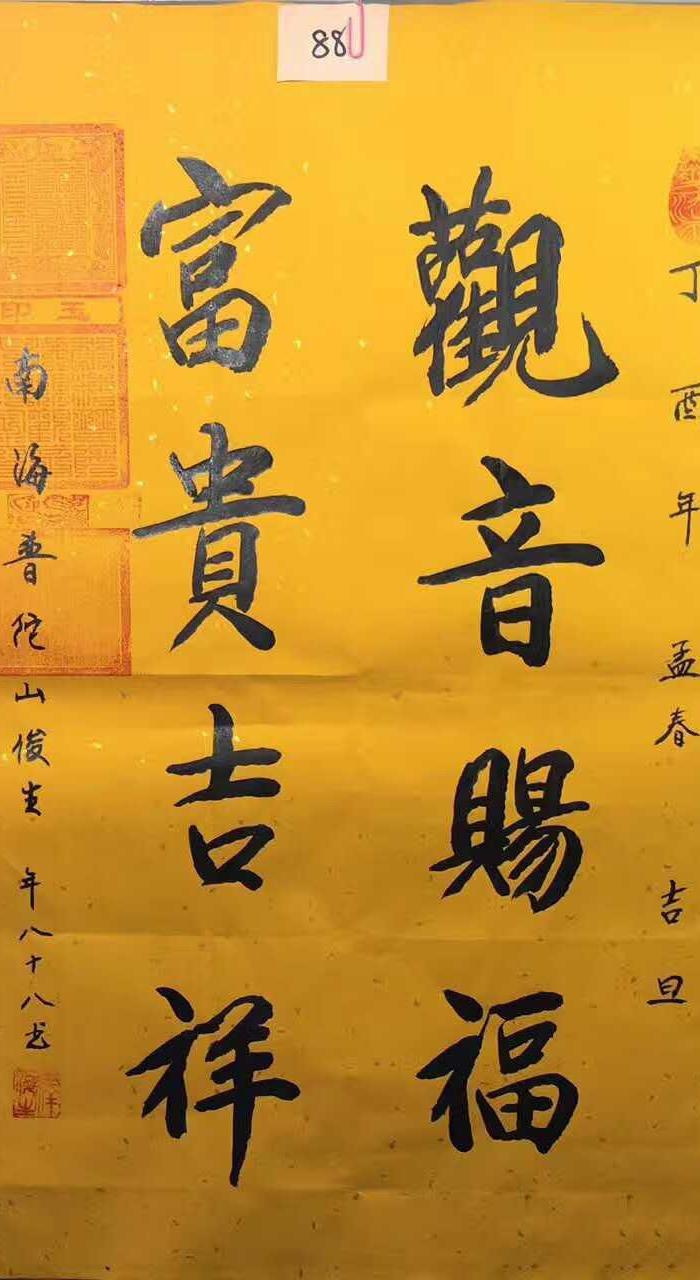 88
丁酉年孟春吉旦
觀音賜福
富貴吉祥
南海普陀山俊生年八十八书
玉印